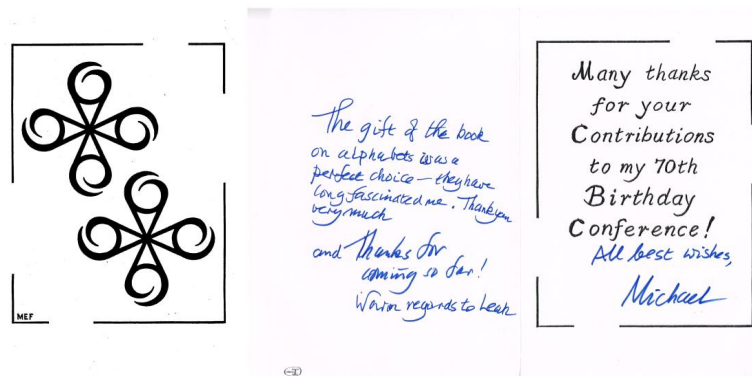 MEF
The gift of the book
on alphabets was a
perfect choice — they have
long fascinated me. Thank you
very much
and Thanks for
coming so far!
Warm regards to Leah
Many thanks
for your
Contributions
to my 70th
Birthday
Conference!
All best wishes,
Michael